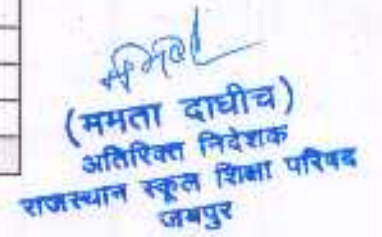 (ममता दाधीच)
अतिरिक्त निदेशक
राजस्थान स्कूल शिक्षा परिषद
जयपुर